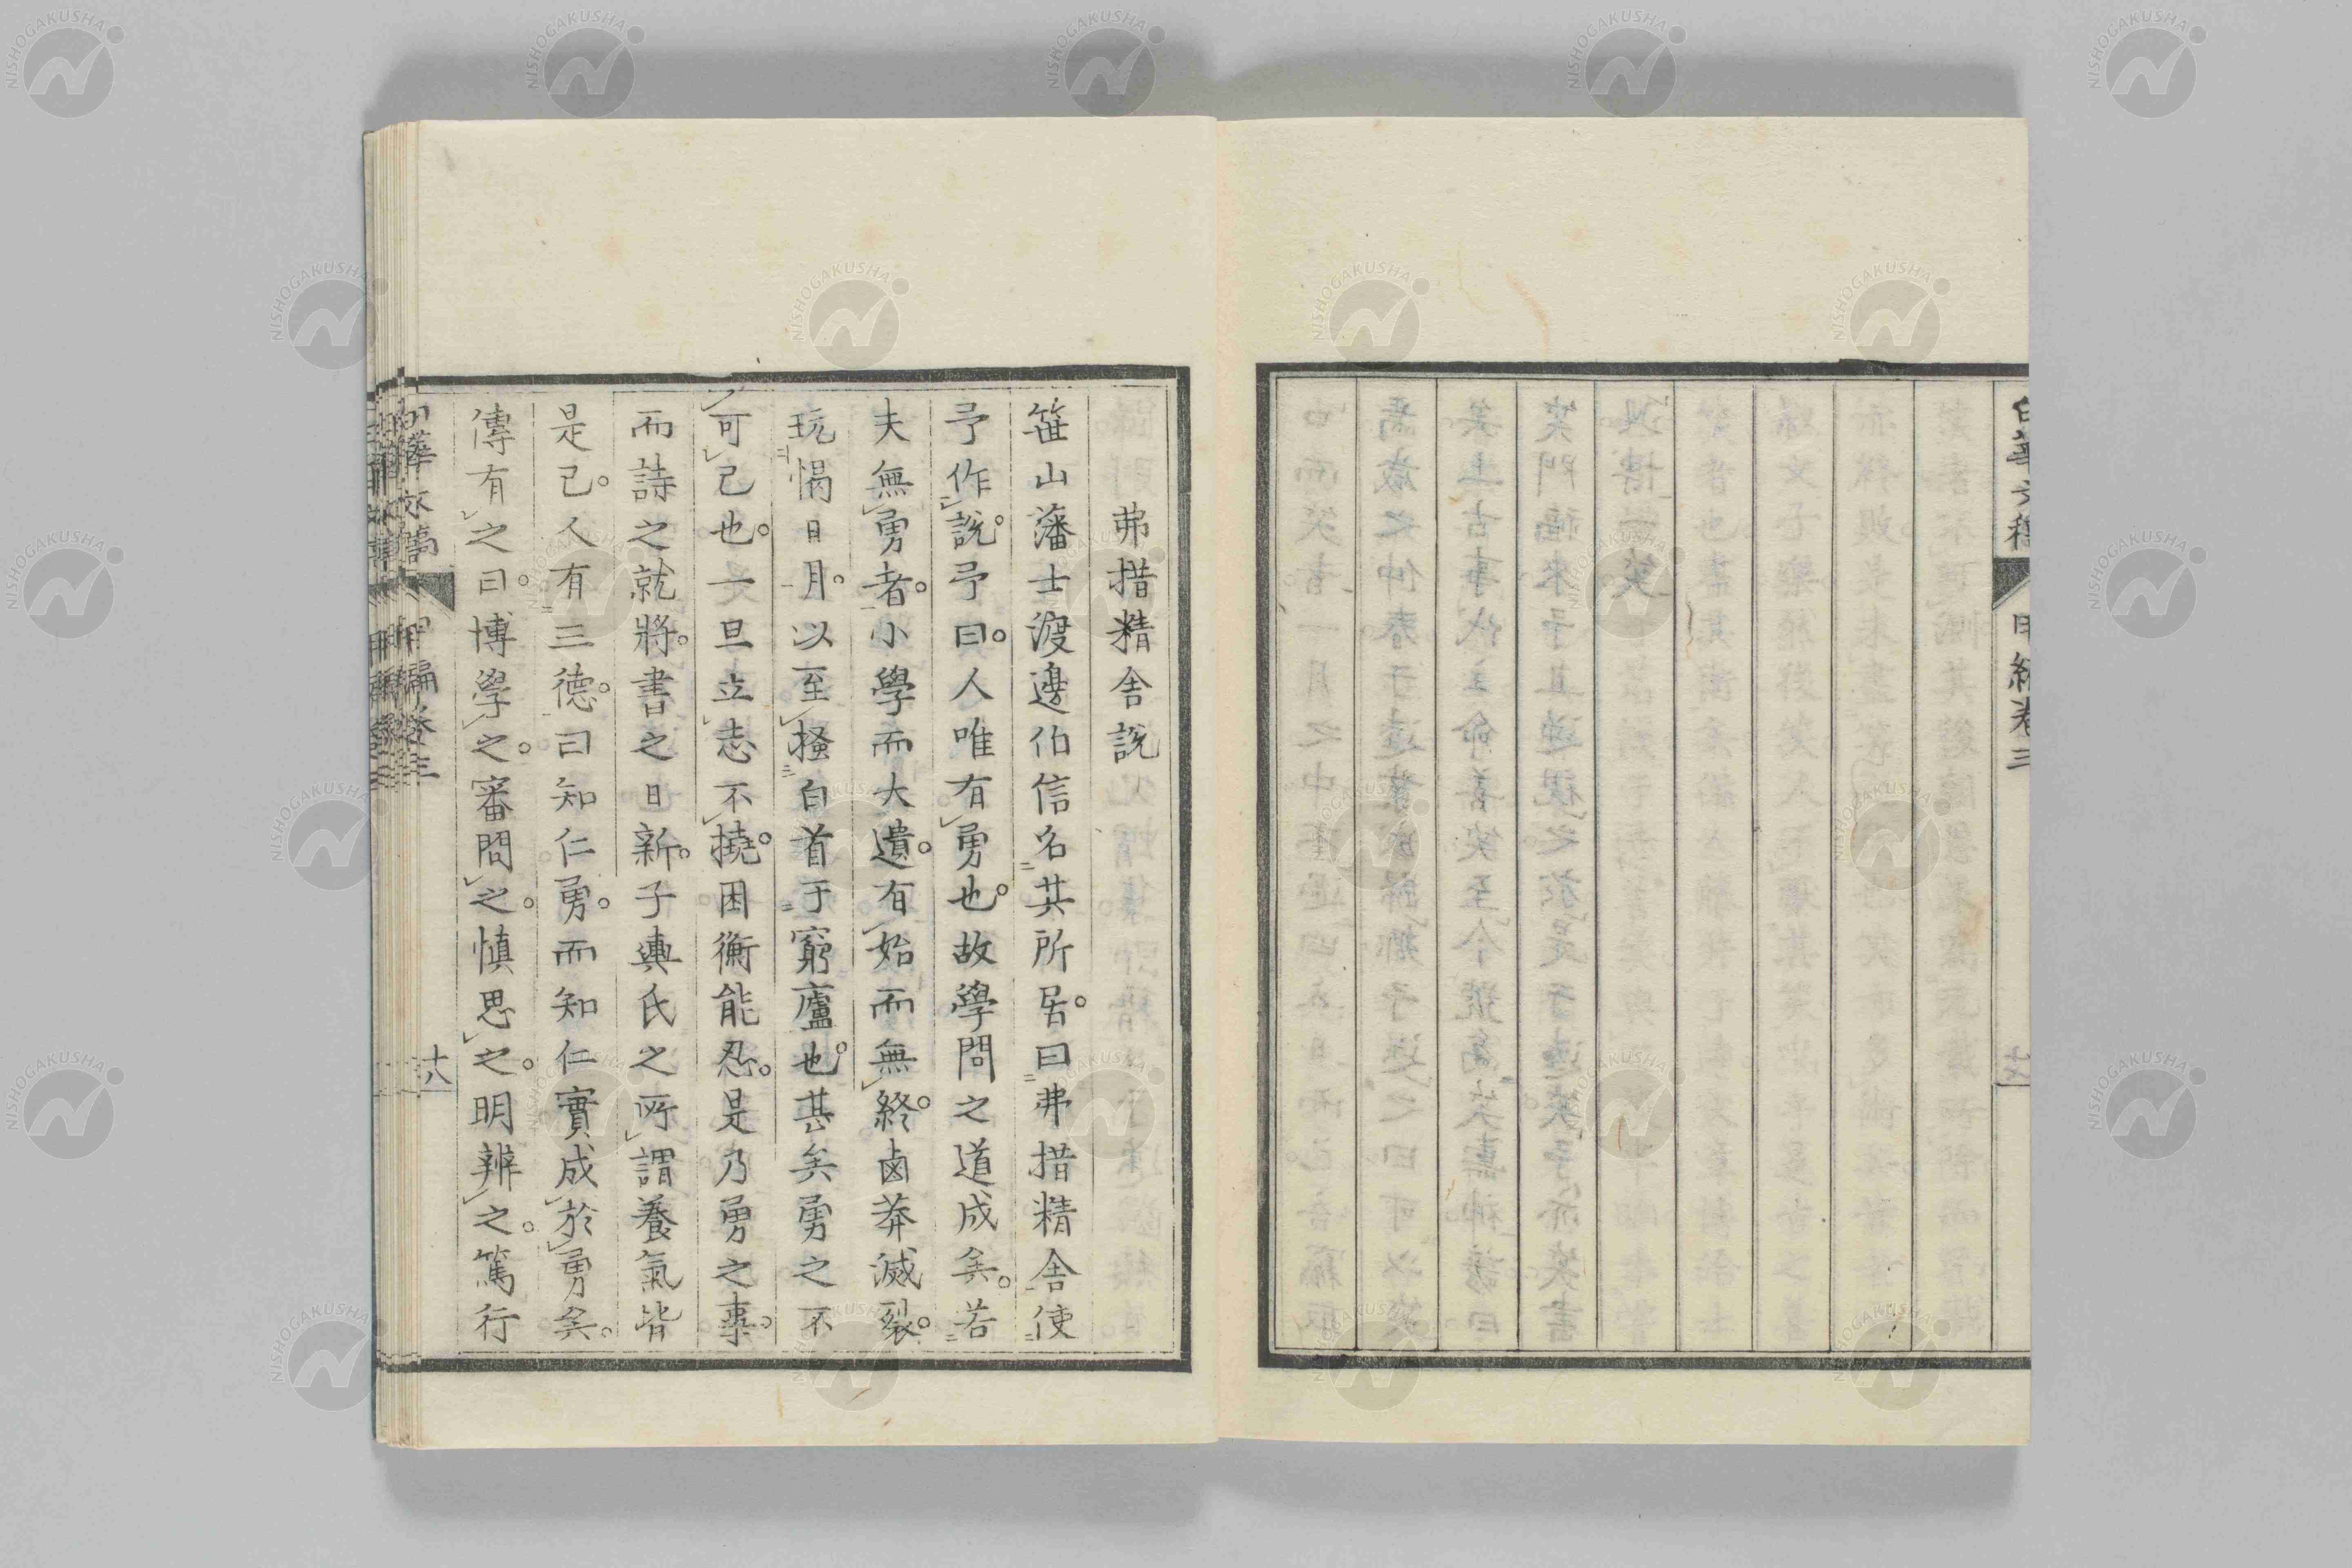 弗措精舍說
笹山藩士渡邊伯信名其所居。曰弗措精舍使
予作說。予曰。人唯有勇也。故學問之道成矣。若
夫無勇者。小學而大遺。有始而無終。鹵莽滅裂。
玩愒日月。以至搔白首于窮廬也。甚矣勇之不
可已也。一旦立志不撓。困衡能忍。是乃勇之事。
而詩之就將。書之日新。子輿氏之所謂養氣皆
是已。人有三德。曰知仁勇。而知仁實成於勇矣。
傳有之。曰博學之。審問之。慎思之。明辨之。篤行
十八
NISHOGAKUSHA